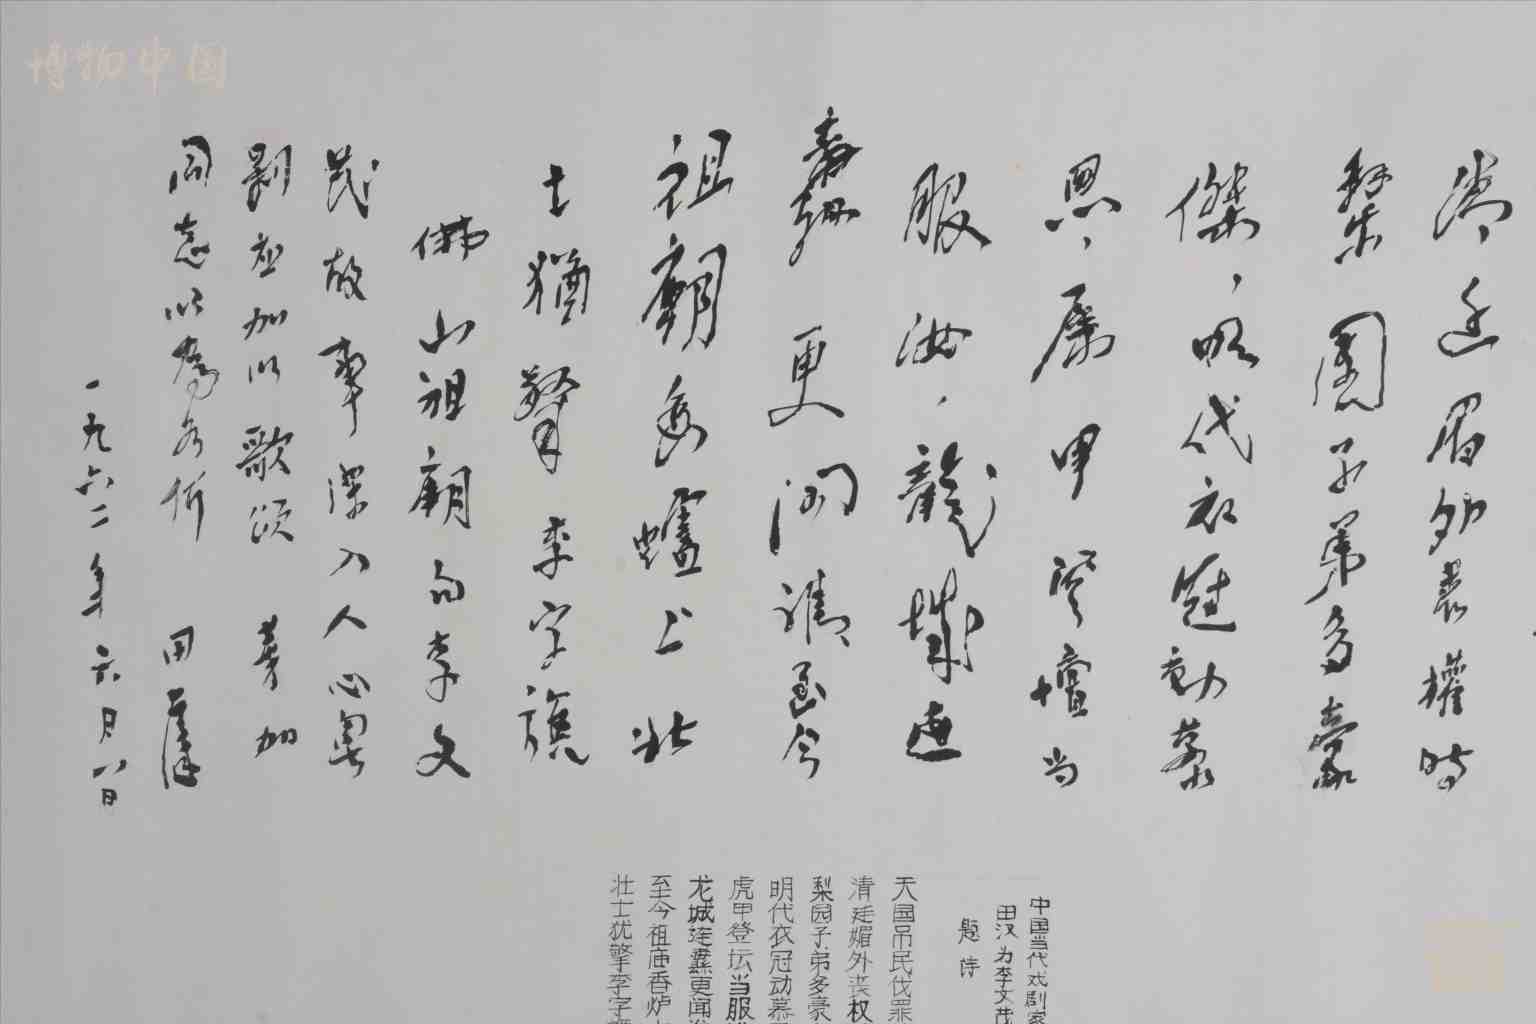 清廷眉外丧權時
梨園子弟多豪
傑，明代衣冠動慕
恩，虎甲登壇当
服汝，龍城連
更闻誰至今
祖廟香爐上壮
士猶擎李字旗
佛山祖廟李文
茂故事深入人心粤
剧应加以歌颂 加
同志以為如何 田漢
一九六二年六月八日
中国当代戏剧家
田汉为李文茂
题诗
天国吊民伐罪
清廷媚外丧权
梨园子弟多豪
明代衣冠动慕
虎甲登坛当服
龙城连更闻
至今祖庙香炉
壮士犹擎李字
博物中国